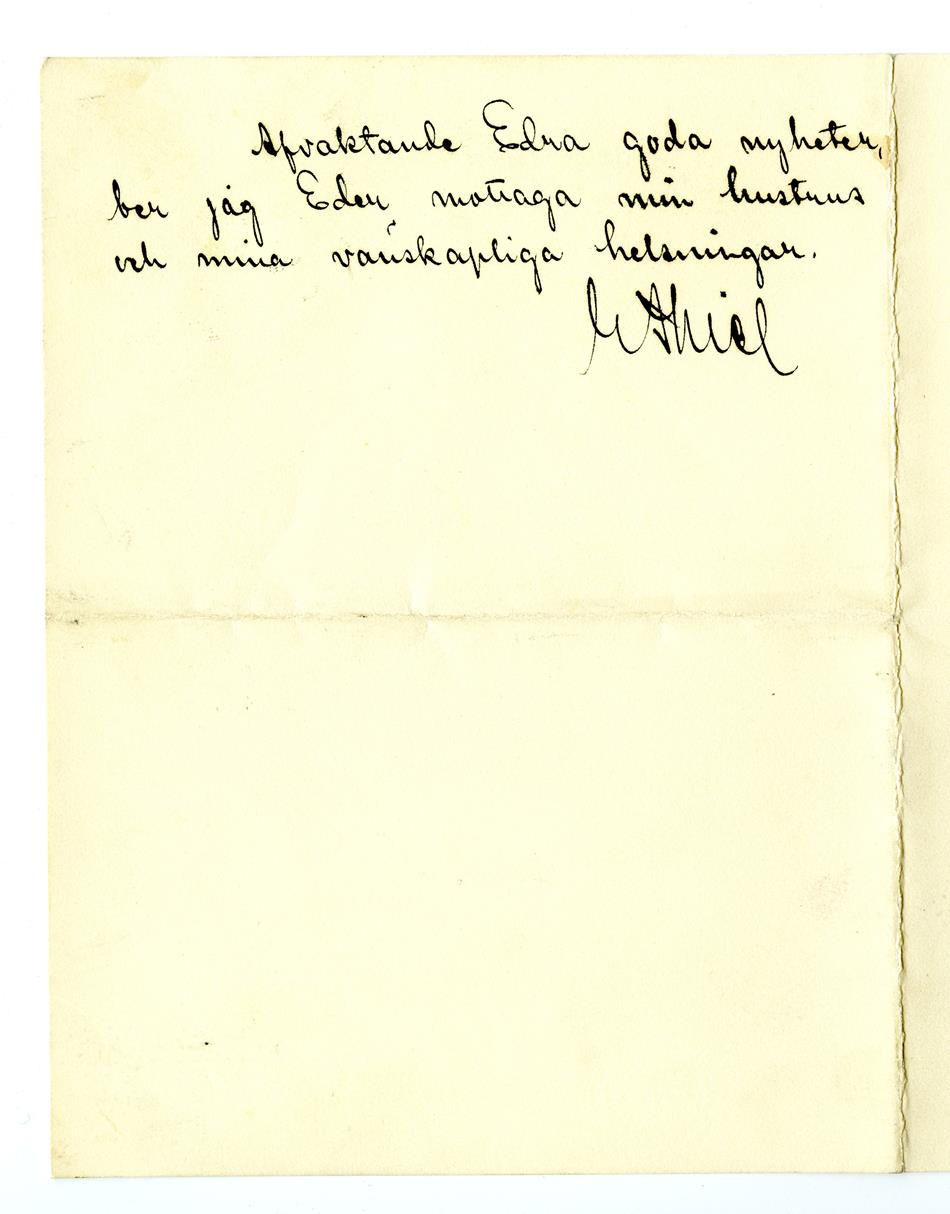 Afvaktande Edra goda nyheter,
ber jag Eder mottaga min hustrus
och mina vänskapliga helsningar.
E Thiel